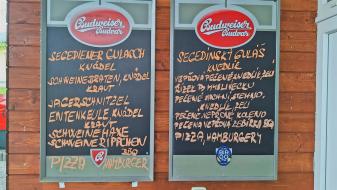 Budweiser
Budvar
SEGEDIENER GULASCH
KNÖDEL
SCHWEINEBRATEN, KNÖDEL
KRAUT
JÄGERSCHNITZEL
ENTENKEULE KNÖDEL
KRAUT
SCHWEINE HAXE
SCHWEINE RIPPCHEN
BBQ
PIZZA HAMBURGER
Budweiser
Budvar
SEGEDÍNSKÝ GULÁŠ
KNEDLÍK
VEPŘOVÁ PEČENĚ, KNEDLÍK, ZELÍ
ŘÍZEK PO MYSLIVECKU
PEČENÉ KACHNÍ STEHNO,
KNEDLÍK, ZELÍ
PEČENÉ VEPŘOVÉ KOLENO
PEČENÁ VEPŘOVÁ ŽEBÍRKA BBQ
PIZZA, HAMBURGERY